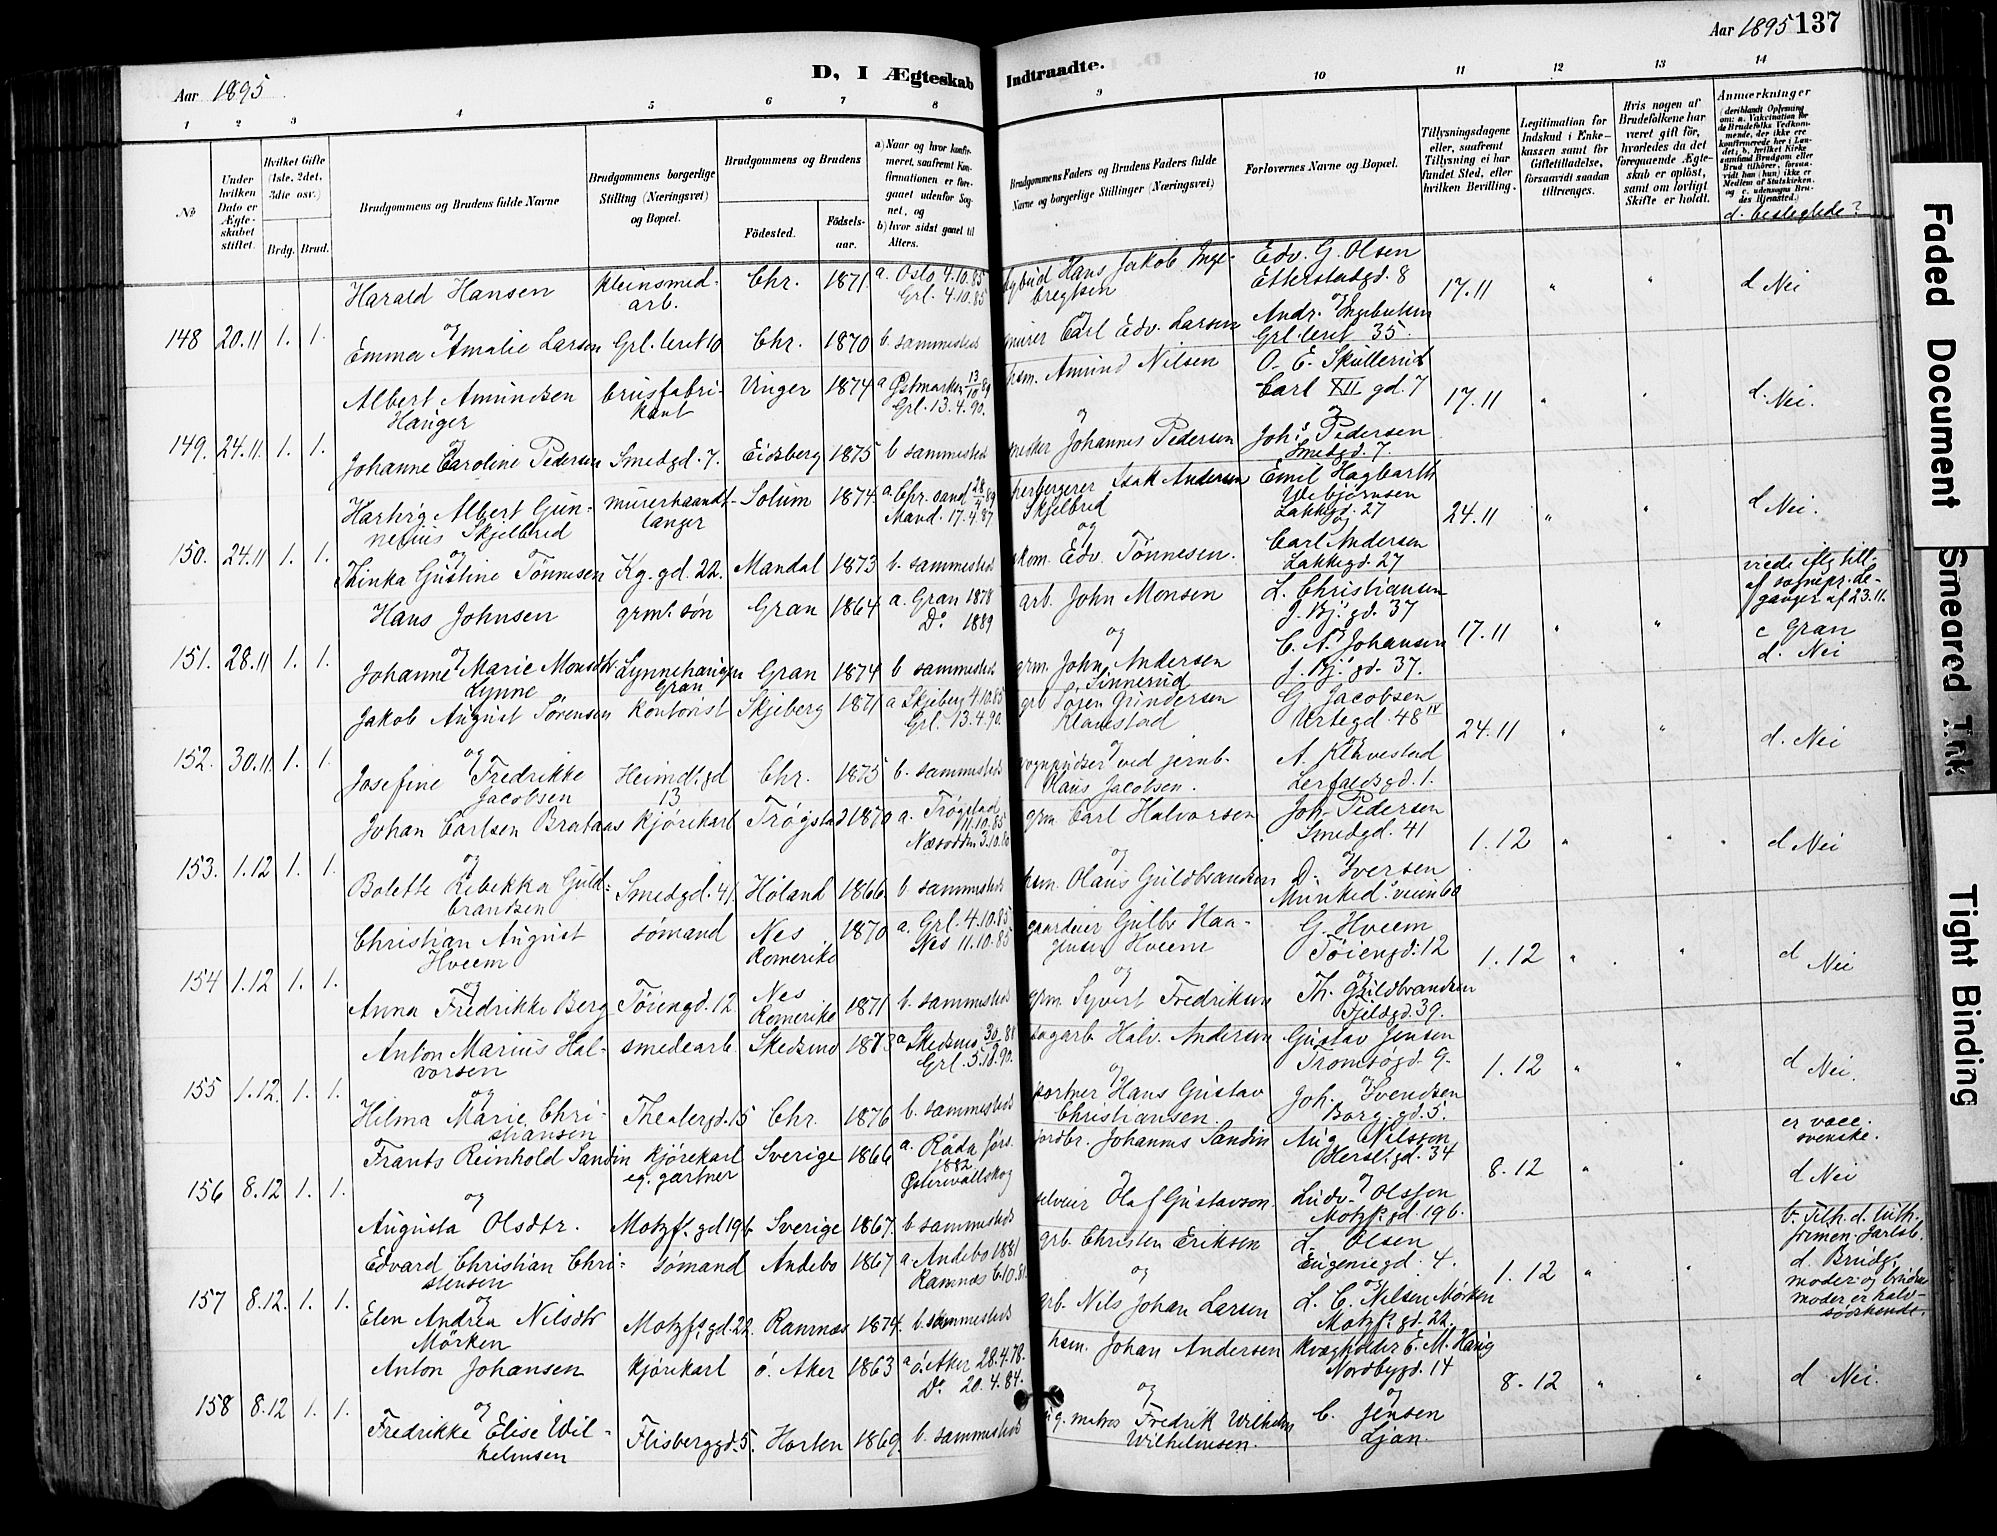 Aar 1895
D, I Ægteskab
Indtraadte.
Aar 1895 137
1 2 3 4 5 6 7 8 9 10 11 12 13 14
No
Under hvilken Dato er Ægteskabet stiftet.
Hvilket Gifte (1ste, 2det, 3die osv.)
Brdg. Brud.
Brudgommens og Brudens fulde Navne
Brudgommens borgerlige Stilling (Næringsvei) og Bopæl.
Brudgommens og Brudens
Fødested. Fødsels-aar.
a) Naar og hvor konfirmeret, saafremt Konfirmationen er foregaaet udenfor Sognet, og
b) hvor sidst gaaet til Alters.
Brudgommens Faders og Brudens Faders fulde Navne og borgerlige Stillinger (Næringsvei)
Forlovernes Navne og Bopæl.
Tillysningsdagene eller, saafremt Tillysning ei har fundet Sted, efter hvilken Bevilling.
Legitimation for Indskud i Enkekassen samt for Giftetilladelse, forsaavidt saadan tiltrænges.
Hvis nogen af Brudefolkene har været gift før, hvorledes da det foregaaende Ægteskab er opløst, samt om lovligt Skifte er holdt.
Anmærkninger
d. beslegtede?
Harald Hansen kleinsmed-arb. Chr. 1871 a. Oslo 4.10.85 Grl. 4.10.85 bybud Hans Jakob Ingebregtsen Edv. G. Olsen Etterstadgd. 8 17.11 d Nei
148 20.11 1. 1.
og
Emma Amalie Larsen Grl. leret 10 Chr. 1870 b. sammesteds murer Carl Edv. Larsen Andr. Grl. leret 35.
Albert Amundsen Hauger brusfabrikant Unger 1874 a Østmarken 13/10 89 Grl. 13.4.90. hsm. Amund Nilsen O. E. Skullerud Carl XII gd. 7 17.11 d. Nei.
149. 24.11. 1. 1.
og
Johanne Caroline Pedersen Smedgd. 7. Eidsberg 1875 b sammesteds Johannes Pedersen Johs. Pedersen Smedgd. 7.
Hartvig Albert Gunnerius Skjelbred murerhaandtlanger Solum 1874 a. Chr.sand 28/4 89 Mand. 17.4.87. herbergerer Isak Andersen Skjelbred Emil Hagbarth Webjørnsen Lakkegd. 27 24.11 d Nei.
150. 24.11 1. 1.
og
Zinka Gustine Tønnesen Kg. gd. 22. Mandal 1873 b. sammesteds Edv. Tønnesen. Carl Andersen Lakkegd. 27
Hans Johnsen grmb. søn Gran 1864 a. Gran 1878 Do. 1889 arb. John Monsen L. Christiansen J. Bj. gd. 37 17.11
viede iflg till. af sognepr. af 23.11.
c Gran
d. Nei
151. 28.11 1. 1.
og
Johanne Marie Monsdtr Lynne Lynnehaugen Gran Gran 1874 b sammesteds grm. John Andersen Sinnerud C. A. Johansen J. Bj. gd. 37.
Jakob August Sørensen kontorist Skjeberg 1871 a Skjeberg 4.10.85 Grl. 13.4.90. Søren Gundersen Klavestad G. Jacobsen Urtegd. 48 IV 24.11 d. Nei
152. 30.11. 1. 1.
og
Josefine Fredrikke Jacobsen Heimdl.gd 13 Chr. 1875 b. sammesteds vognpudser ved jernb. Olaus Jacobsen. A. Klavestad Lerfaldsgd. 1.
Johan Carlsen Brataas kjørekarl Trøgstad 1870 a. Trøgstad 11.10.85 Næsodden grm. Carl Halvorsen Joh. Pedersen Smedgd. 41 1.12 d Nei
153. 1.12 1. 1.
og
Bolette Rebekka Guldbrandsen Smedgd. 41. Høland 1866. b. sammesteds hsm. Olaus Guldbrandsen D. Iversen
Christian August Hveem sømand Nes Romerike 1870 a. Grl. 4.10.85 Nes 11.10.85 gaardeier Gulbr. Haagensen Hveem G. Hveem Tøiengd. 12 1.12 d Nei
154 1.12 1. 1.
og
Anna Fredrikke Berg Tøiengd. 12 Nes Romerike 1871 b. sammesteds grm. Syvert Fredriksen Th. Guldbrandsen Fjeldgd. 39.
Anton Marius Halvorsen smedearb Skedsmo 1873 a Skedsmo 30/9 88 Grl. 5.10.90. sagarb Halv. Andersen Gustav Jensen Tromsøgd. 9. 1.12 d Nei.
155 1.12. 1. 1.
og
Hilma Marie Christiansen Theatergd. 15 Chr. 1876 b. sammesteds portner Hans Gustav Christiansen. Joh. Svendsen Borg. gd. 5.
Frants Reinhold Sandin kjørekarl eg. gartner Sverige 1866 a. Råda førs. 1882 Østervallskog jordbr. Johannes Sandin Aug. Nilsson 34 8.12
er vacc. svenske.
d Nei
156 8.12 1. 1.
og
Augusta Olsdtr. Motzf. gd 19 b Sverige 1867. b sammesteds selveier Olaf Gustavson. Ludv. Olsson Motzf. gd. 19 b.
Edvard Christian Christensen sømand Andebo 1867 a Andebo 1881 Ramnæs 6.10.81. grb. Christen Eriksen L. Olsen Eugeniegd. 4. 1.12
b. Tilh. d. luth. frimen. Jarlsb.
d. Brudg. moder og brudens moder er halvsødskende.
157 8.12. 1. 1.
og
Elen Andrea Nilsdtr Mørken Motzfs. gd. 22. Ramnæs 1874. b. sammesteds grb. Nils Johan Larsen L. C. Nilsen Mørken Motzf. gd. 22.
Anton Johansen kjørekarl ø. Aker 1863 a ø. Aker 28.4.78. Do. 20.4.84. hsm. Johan Andersen kvægholder E. M. Haug Nordbygd. 14 8.12 d Nei.
158 8.12 1. 1.
og
Fredrikke Elise Wilhelmsen Flisberggd. 5. Horten 1869. b. sammesteds matros Fredrik Wilhelm Wilhelmsen. C. Jensen Ljan.
Faded Document
Smeared Ink
Tight Binding